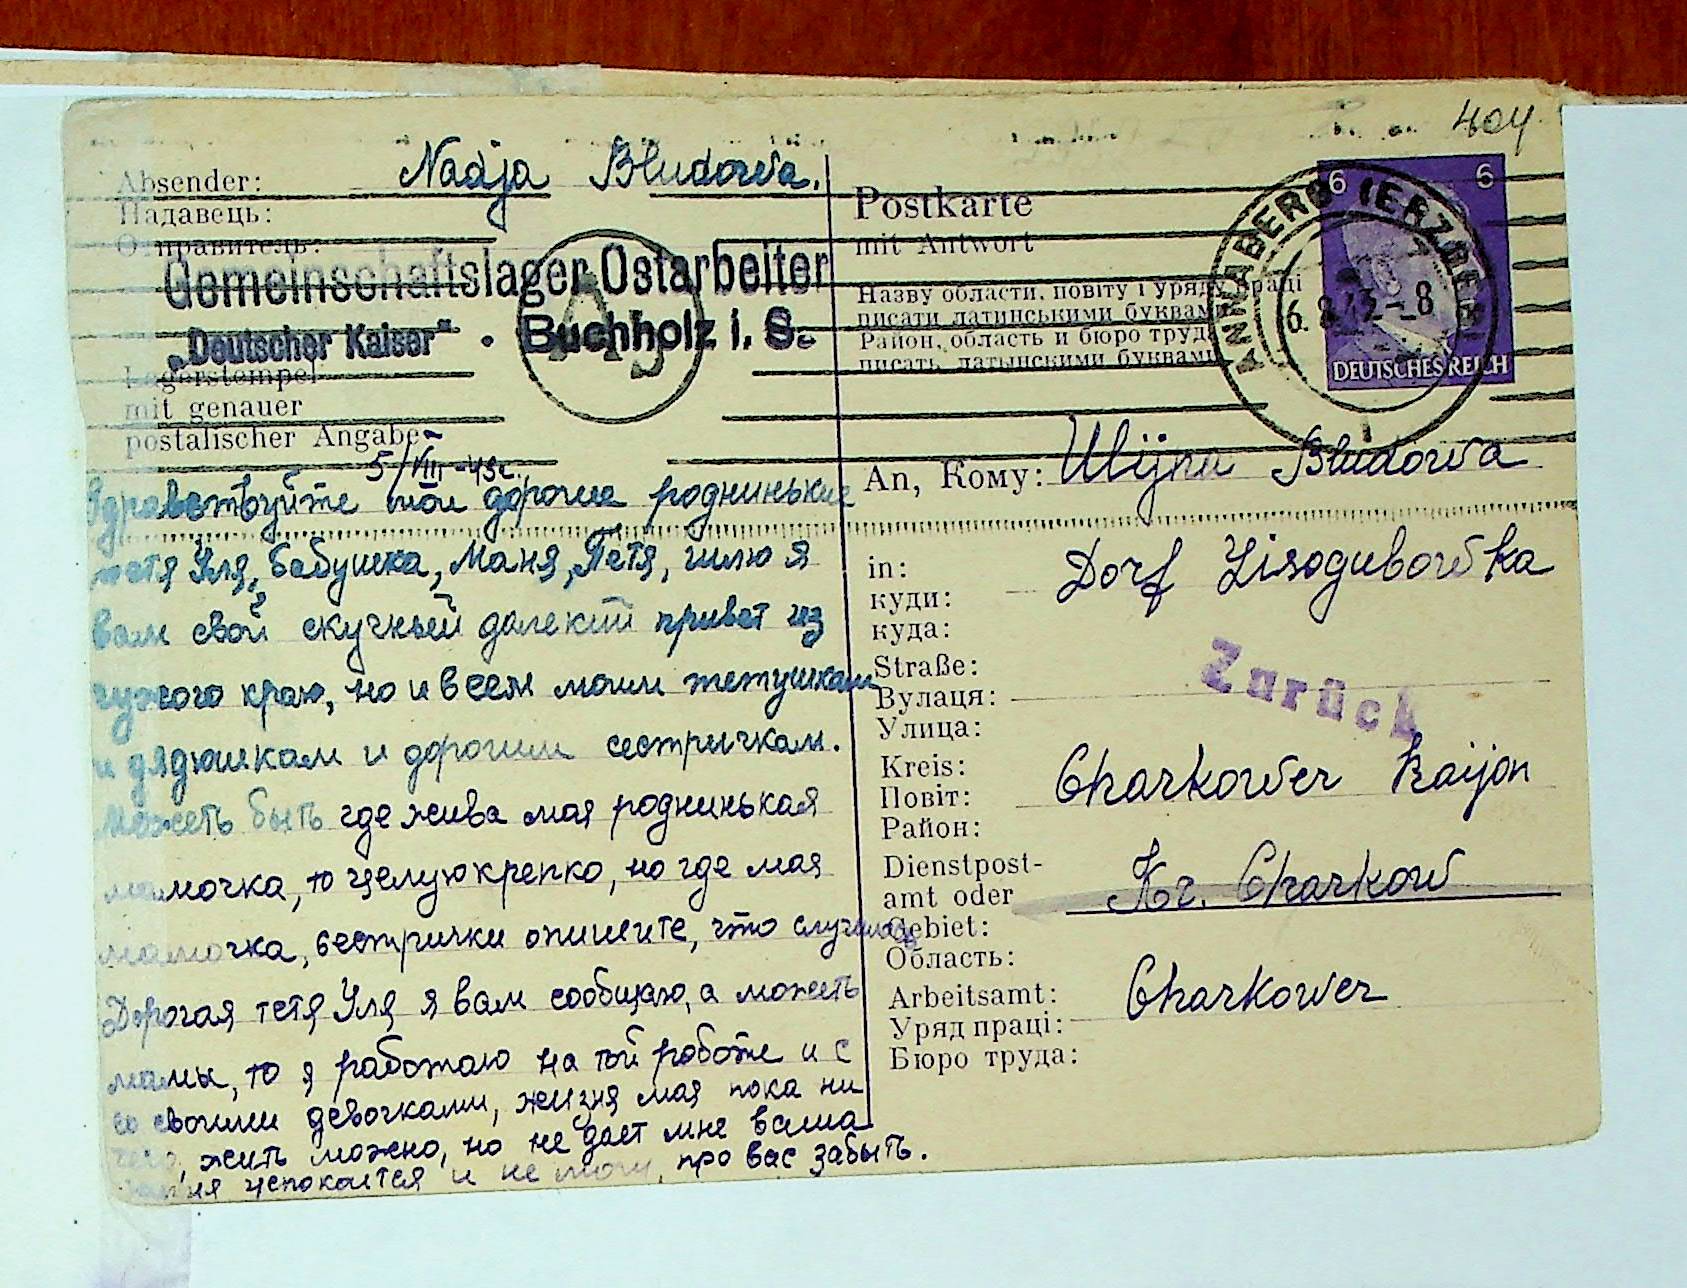 404
Absender: Nadja Bludowa.
Падавець:
Отправитель:
Gemeinschaftslager Ostarbeiter
"Deutscher Kaiser" · Buchholz i. S.
Lagerstempel
mit genauer
postalischer Angabe
5/VIII-43г.
Здравствуйте мои дорогие родниньки
тетя Уля, бабушка, Маня, Петя, шлю я
вам свой скучный далекий привет из
чужого краю, но и всем моим тетушкам
и дядюшкам и дорогим сестричкам.
Можеть быть где жива моя роднинькая
мамочка, то целую крепко, но где моя
мамочка, сестрички опишите, что случилось
Дорогая тетя Уля я вам сообщаю, а можеть
мамы, то я работаю на той работе и с
со своими девочками, жизня моя пока ни
чего, жить можно, но не дает мне ваша
успокоится и не могу про вас забыть.
Postkarte
mit Antwort
Назву области, повіту і уряду праці
писати латинськими буквами
Район, область и бюро труда
писать латынскими буквами
ANNABERG (ERZGEB)
6.8.43-8
1
6 6
DEUTSCHES REICH
An, Кому: Ulijna Bludowa
in: Dorf Lisogubowka
куди:
куда:
Zurück
Straße:
Вулаця:
Улица:
Kreis: Charkower Raijon
Повіт:
Район:
Dienstpost-
amt oder Kr. Charkow
Gebiet:
Область:
Arbeitsamt: Charkower
Уряд праці:
Бюро труда: